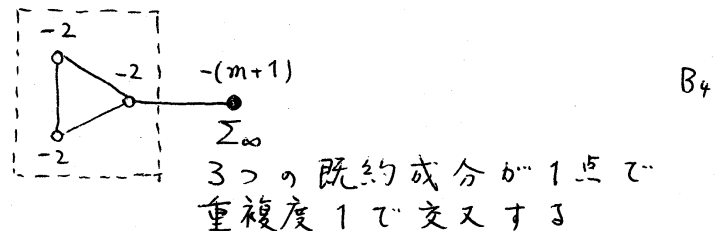 -2
-2
-(m+1)
B4
-2
Σ∞
3つの既約成分が1点で
重複度1で交叉する